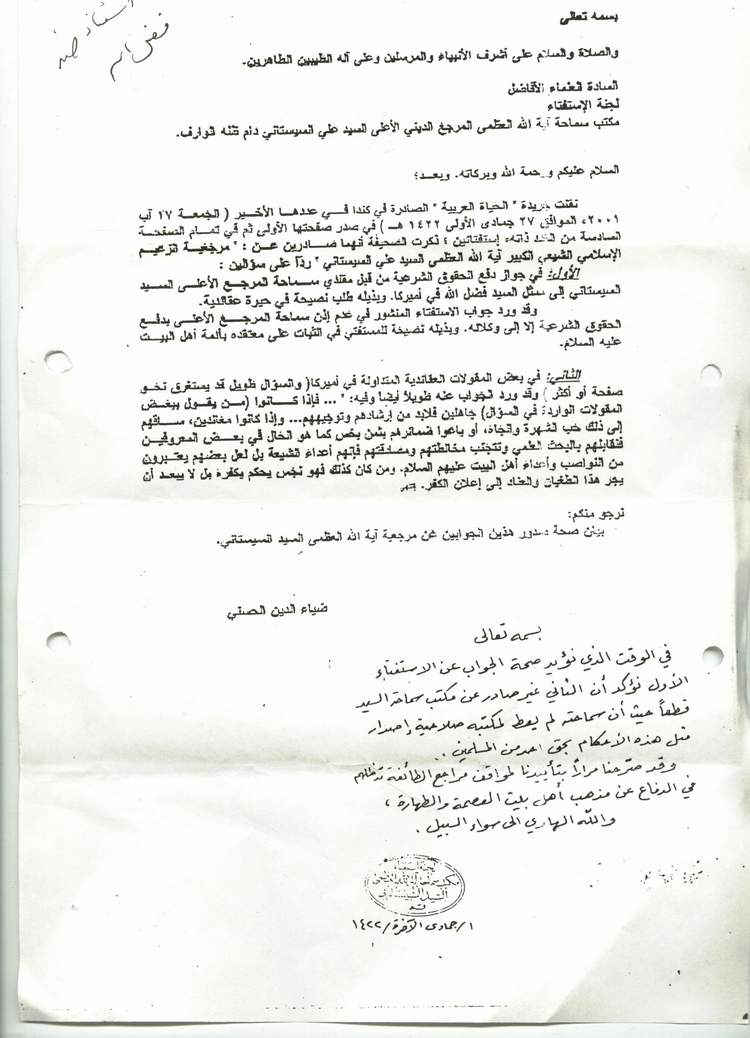 استفتاء ضد
فضل الله
بسمه تعالى
والصلاة والسلام على أشرف الأنبياء والمرسلين وعلى آله الطيبين الطاهرين.
السادة العلماء الأفاضل
لجنة الإستفتاء
مكتب سماحة آية الله العظمى المرجع الديني الأعلى السيد علي السيستاني دام ظله الوارف.
السلام عليكم ورحمة الله وبركاته. وبعد؛
نقلت جريدة " الحياة العربية " الصادرة في كندا فــي عددهـا الأخـير ( الجمعة ٢٧ آب
٢٠٠١، الموافق ٢٧ جمادى الأولى ١٤٢٢ هـ ) في صدر صفحتها الأولى ثم في تمام الصفحة
السادسة من العدد ذاته، إستفتائين ؛ ذكرت الصحيفة أنهما صــادرين عـن : " مرجعية الزعيم
الإسلامي الشيعي الكبير آية الله العظمى السيد علي السيستاني " رداً على سؤالين :
الأول: في جواز دفع الحقوق الشرعية من قبل مقلدي سـماحة المرجـع الأعلـى السـيد
السيستاني إلى ممثل السيد فضل الله في أميركا. وبذيله طلب نصيحة في حيرة عقائدية.
وقد ورد جواب الاستفتاء المنشور في عدم إذن سماحة المرجـع الأعلـى بدفـع
الحقوق الشرعية إلا إلى وكلائه. وبذيله نصيحة للمستفتي في الثبات على معتقده بأئمة أهل البيت
عليه السلام.
الثاني: في بعض المقولات العقائدية المتداولة في أميركا( والسؤال طويل قد يستغرق نحـو
صفحة أو أكثر ) وقد ورد الجواب عنه طويلاً أيضاً وفيه: " ... فإذا كـانوا (مـن يقـول ببعـض
المقولات الواردة في السؤال) جاهلين فلابد من إرشادهم وتوجيههم... وإذا كانوا معاندين، ساقهم
إلى ذلك حب الشهرة والجاه، أو باعوا ضمائرهم بثمن بخس كما هو الحال في بعـض المعروفين
فنقابلهم بالبحث العلمي ونتجنب مخالطتهم ومصادقتهم فإنهم أعداء الشيعة بل لعل بعضهم يعتبرون
من النواصب وأعداء أهل البيت عليهم السلام. ومن كان كذلك فهو نجس يحكم بكفره بل لا يبعـد أن
يجر هذا الطغيان والعناد إلى إعلان الكفر.
نرجو منكم:
بيان صحة صدور هذين الجوابين عن مرجعية آية الله العظمى السيد السيستاني.
ضياء الدين الحسني
بسمه تعالى
في الوقت الذي نؤيد صحة الجواب عن الاستفتاء
الأول نؤكد أن الثاني غير صادر عن مكتب سماحة السيد
قطعاً حيث أن سماحته لم يعط لمكتبه صلاحية إصدار
مثل هذه الأحكام بحق احد من المسلمين .
وقد صرّحنا مراراً بتأييدنا لمواقف مراجع الطائفة
في الدفاع عن مذهب أهل بيت العصمة والطهارة ،
والله الهادي الى سواء السبيل .
لجنة استفتاء
السيد السيستاني
١/جمادى الآخرة/١٤٢٢